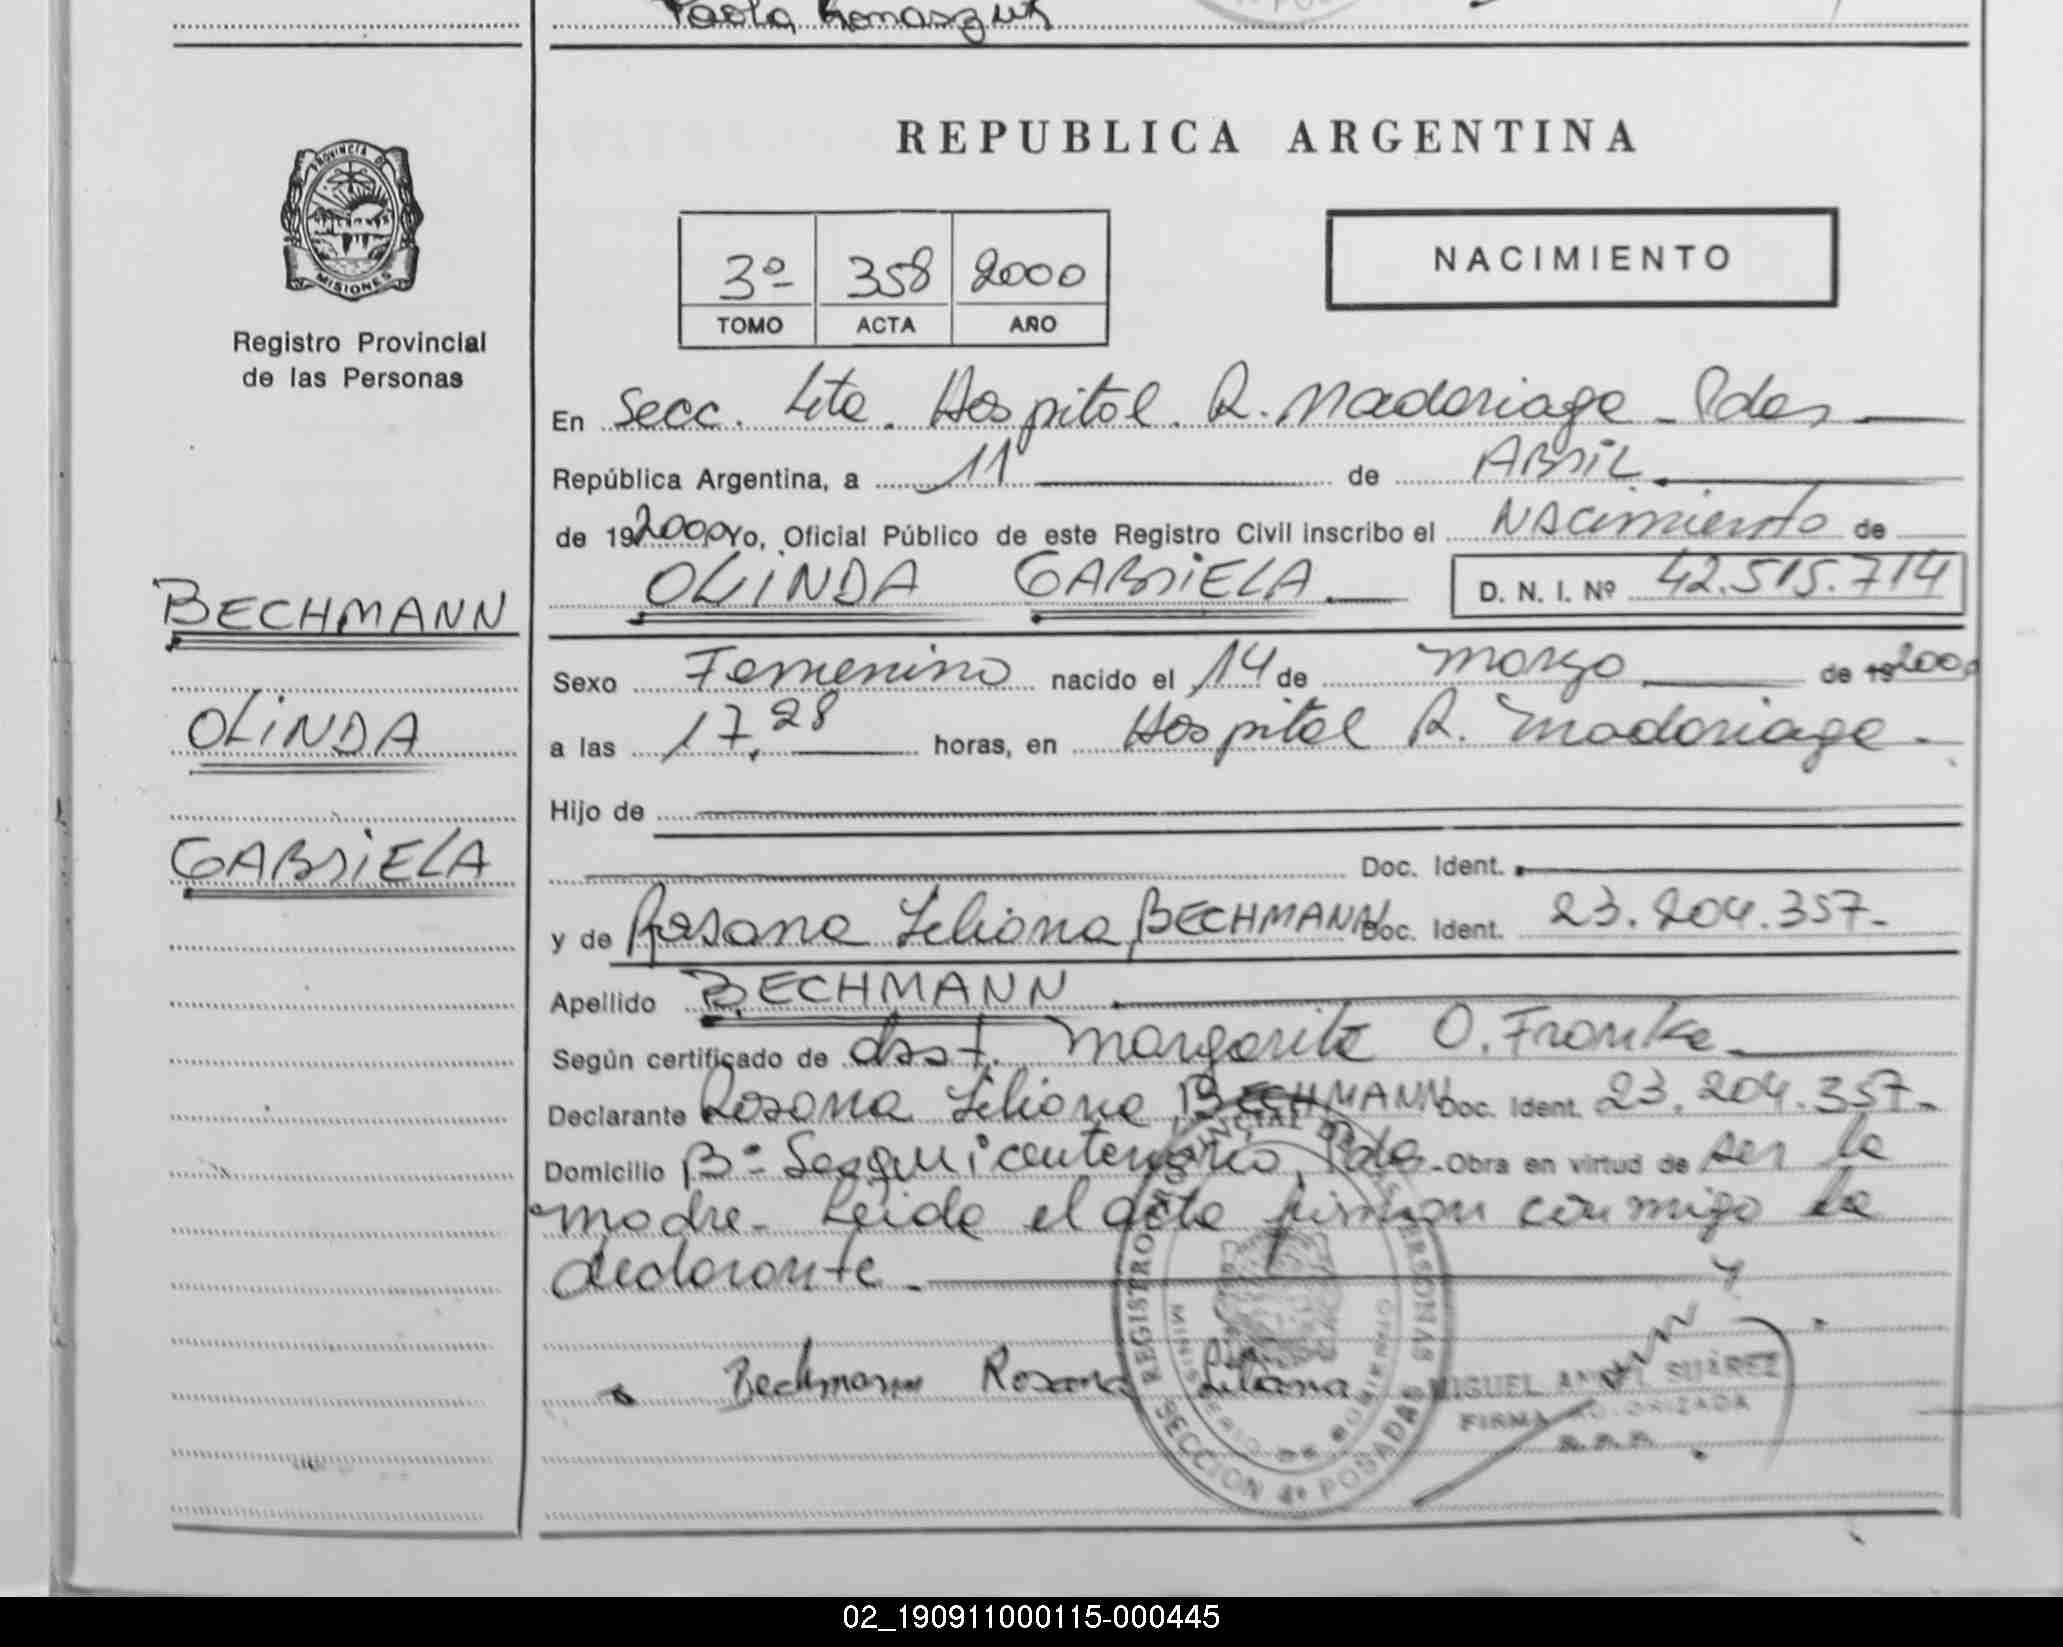 Paola
REPUBLICA ARGENTINA
PROVINCIA DE
MISIONES
Registro Provincial
de las Personas
3º 358 2000
TOMO ACTA AÑO
NACIMIENTO
En Secc. 4ta. Hospital. R. Madariaga - Pdas
República Argentina, a 11 de ABRIL
de 192000 Yo, Oficial Público de este Registro Civil inscribo el Nacimiento de
OLINDA GABRIELA. D. N. I. Nº 42.515.714
BECHMANN
OLINDA
GABRIELA
Sexo Femenino nacido el 14 de marzo de 19 2000
a las 17,28 horas, en Hospital R. Madariaga.
Hijo de
Doc. Ident.
y de Rosana Liliana BECHMANN Doc. Ident. 23.204.357.-
Apellido BECHMANN
Según certificado de obst. Margarita O. Franke
Declarante Rosana Liliana BECHMANN Doc. Ident. 23.204.357.-
Domicilio Bº Sesquicentenario, Pdas - Obra en virtud de ser la
madre - Leida el acta firman conmigo la
declarante
Bechmann Rosana Liliana
MIGUEL ANGEL SUÁREZ
FIRMA AUTORIZADA
R.P.P.
REGISTRO PROVINCIAL DE LAS PERSONAS
MINISTERIO DE GOBIERNO
SECCION 4º POSADAS
02_190911000115-000445